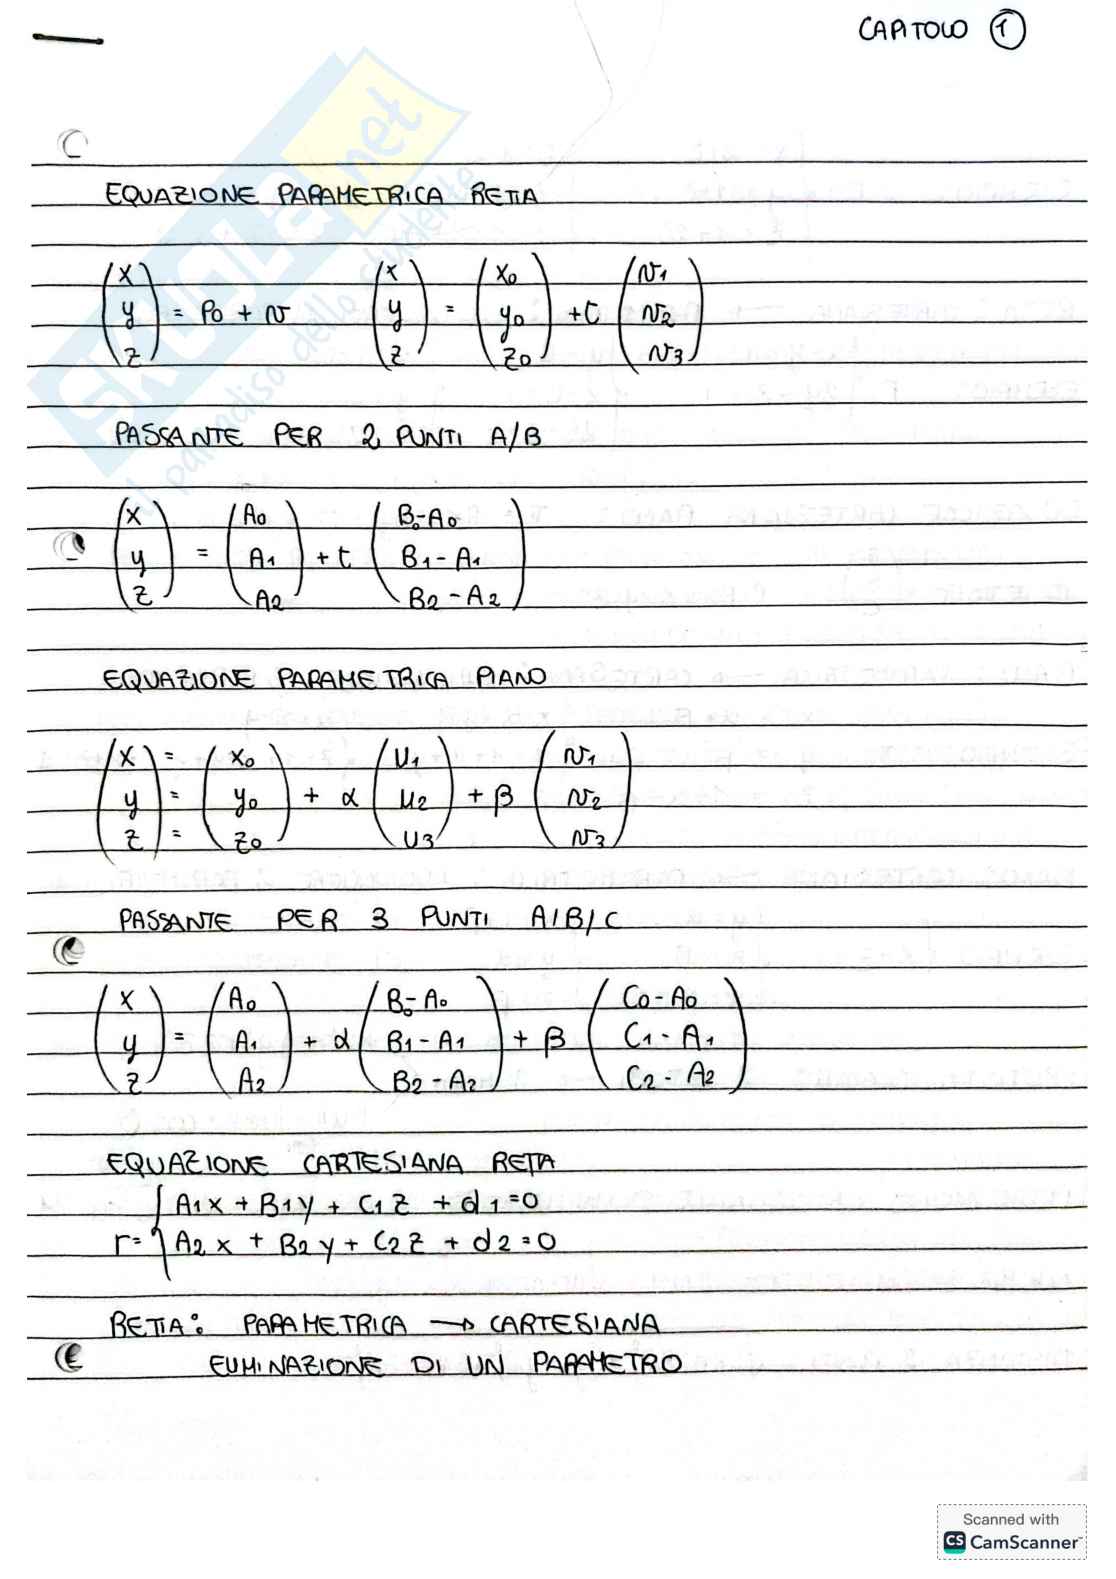 CAPITOLO 1
SKUOLA.net
il paradiso dello studente
EQUAZIONE PARAMETRICA RETTA
(x y z) = P0 + v (x y z) = (x0 y0 z0) + t (v1 v2 v3)
PASSANTE PER 2 PUNTI A/B
(x y z) = (A0 A1 A2) + t (B0-A0 B1-A1 B2-A2)
EQUAZIONE PARAMETRICA PIANO
(x y z) = = = (x0 y0 z0) + α (u1 u2 u3) + β (v1 v2 v3)
PASSANTE PER 3 PUNTI A/B/C
(x y z) = (A0 A1 A2) + α (B0-A0 B1-A1 B2-A2) + β (C0-A0 C1-A1 C2-A2)
EQUAZIONE CARTESIANA RETTA
r= { A1x + B1y + C1z + d1=0
A2x + B2y + C2z + d2=0
RETTA: PARAMETRICA → CARTESIANA
ELIMINAZIONE DI UN PARAMETRO
Scanned with
CS CamScanner